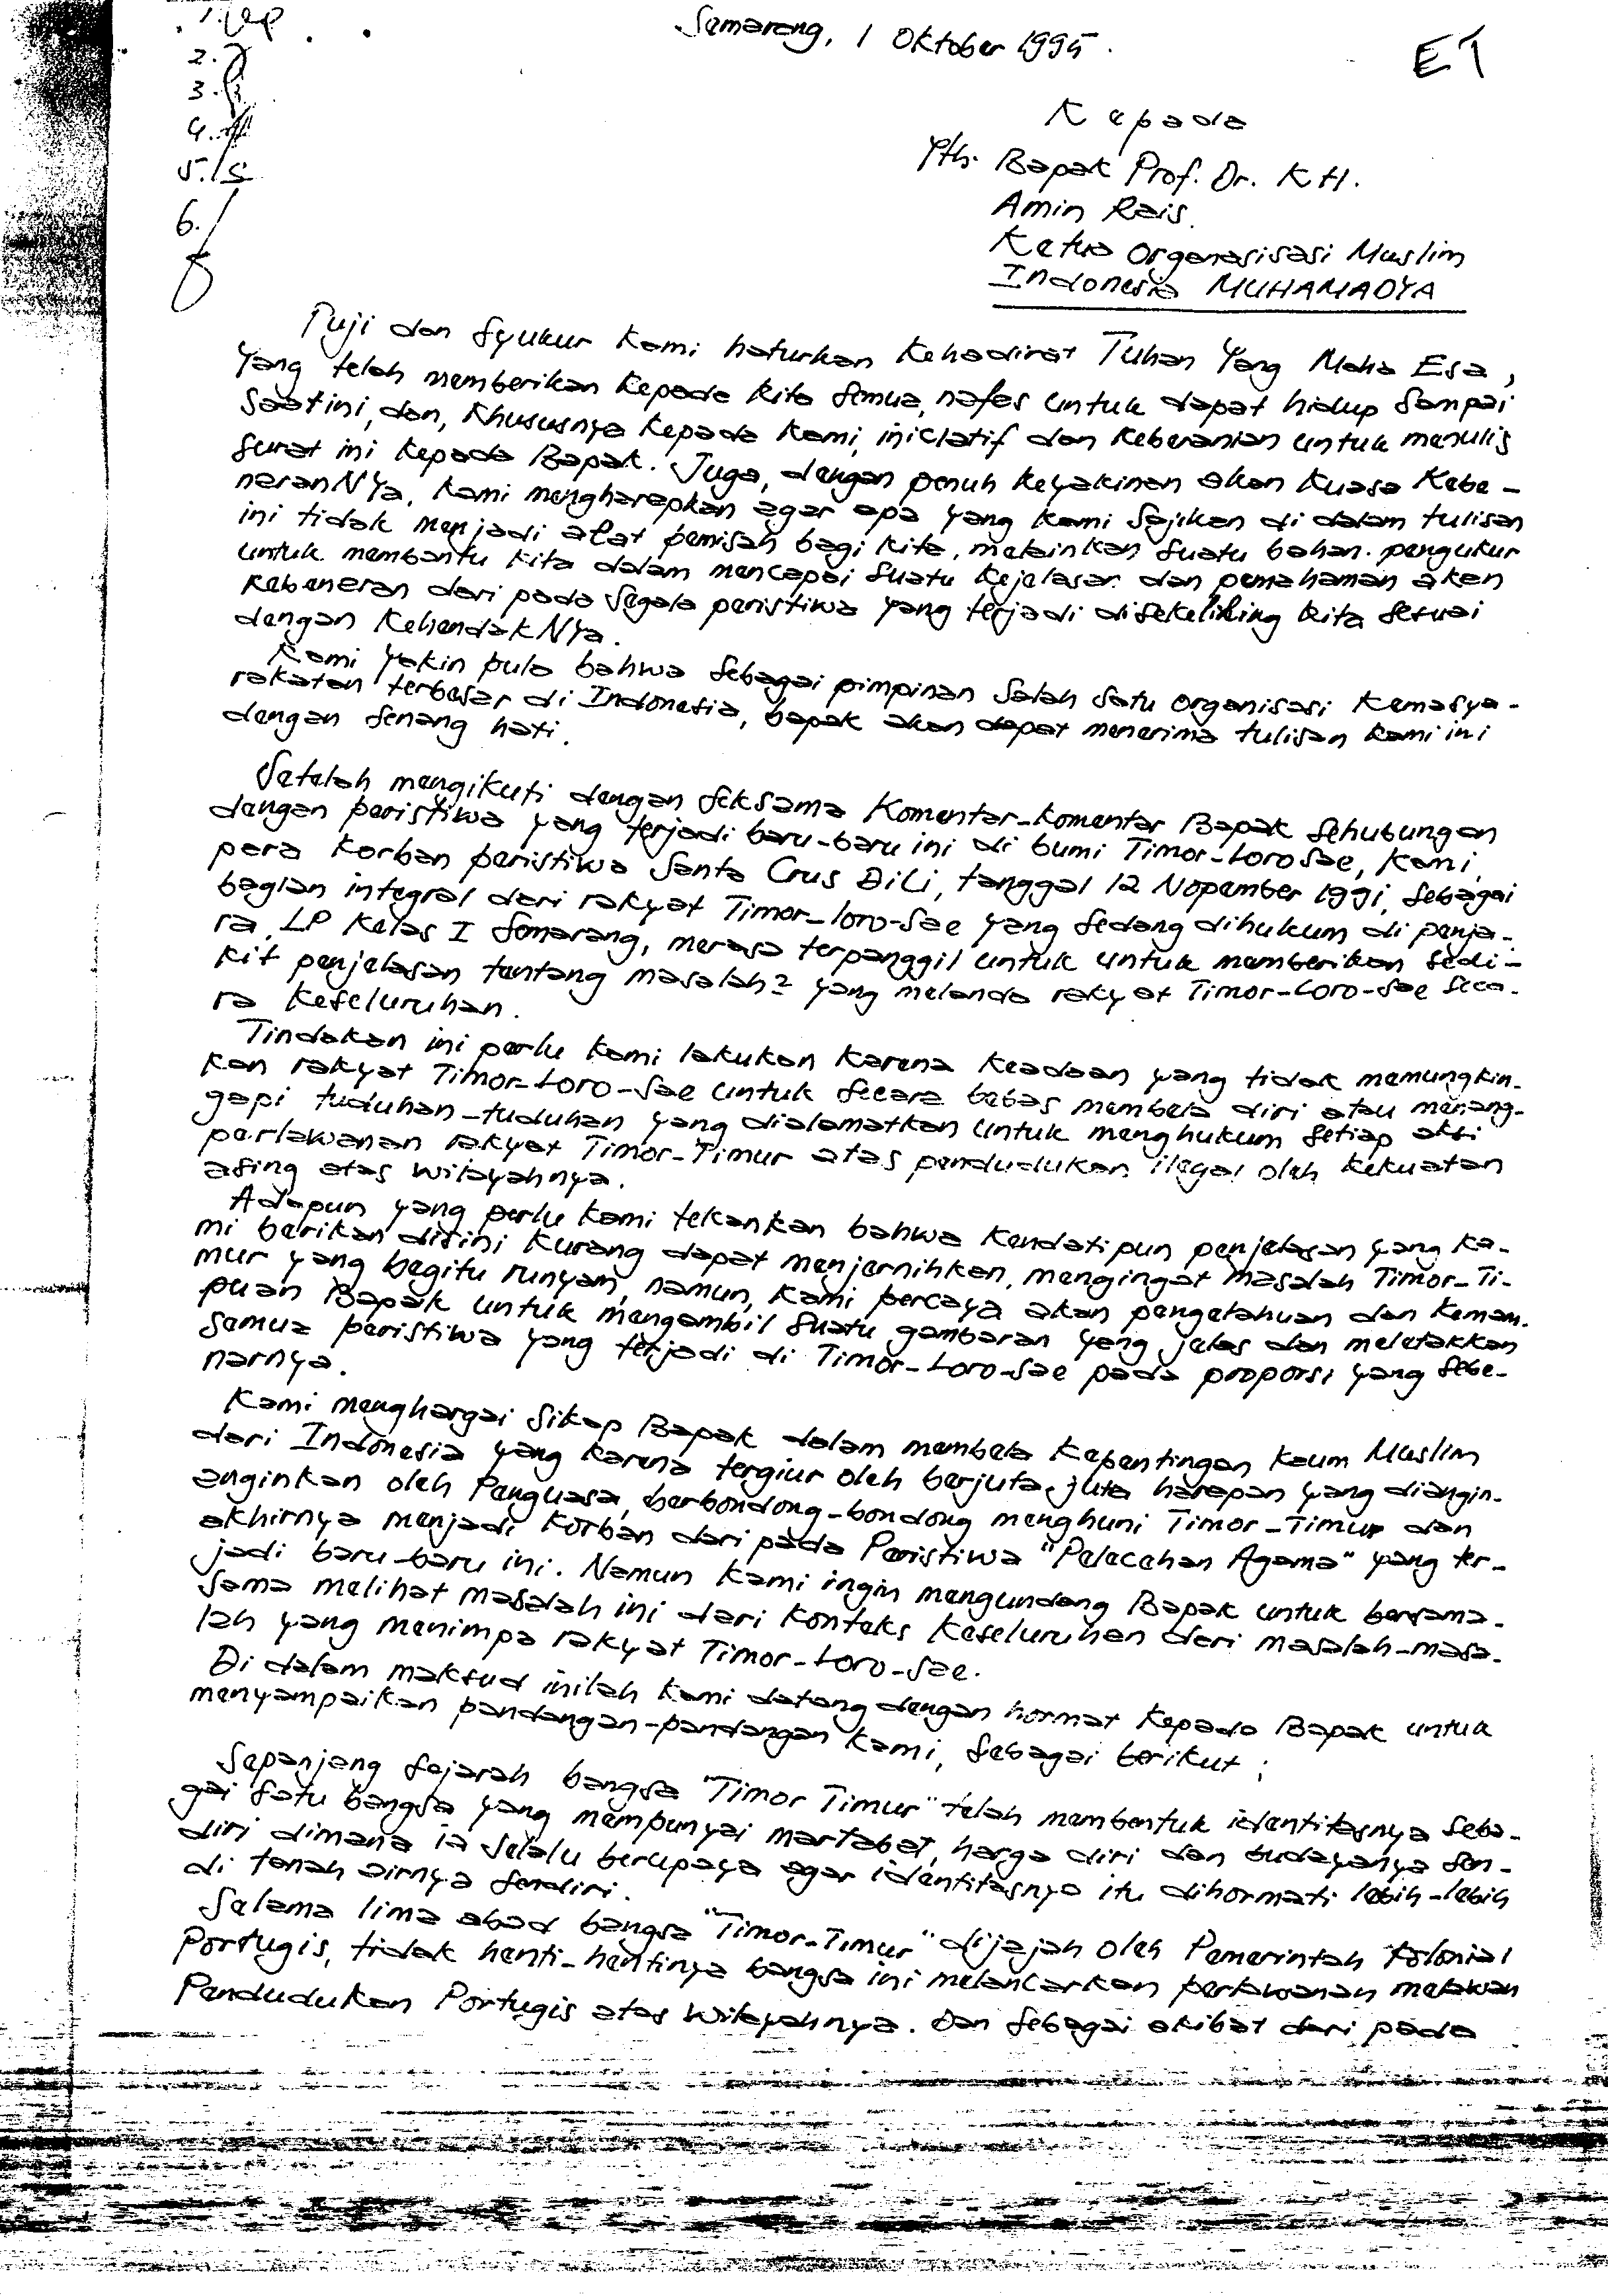 Semarang, 1 Oktober 1995.
ET
1.
2.
3.
4.
5.
6.
Kepada
Yth. Bapak Prof. Dr. KH.
Amin Rais.
Ketua Organasisasi Muslim
Indonesia MUHAMADYA
Puji dan Syukur Kami haturkan Kehadirat Tuhan Yang Maha Esa,
Yang telah memberikan kepada kita semua, nafas untuk dapat hidup sampai
saat ini, dan, khususnya kepada kami, iniciatif dan keberanian untuk menulis
surat ini kepada Bapak. Juga, dengan penuh keyakinan akan kuasa kebe-
naranNYa, kami mengharapkan agar apa yang kami sajikan di dalam tulisan
ini tidak menjadi alat pemisah bagi kita, melainkan suatu bahan pengukur
untuk membantu kita dalam mencapai suatu kejelasan dan pemahaman akan
kebeneran dari pada segala peristiwa yang terjadi disekeliking kita sesuai
dengan KehendakNYa.
Kami yakin pula bahwa sebagai pimpinan salah satu organisasi kemasya-
rakatan terbesar di Indonesia, bapak akan dapat menerima tulisan kami ini
dengan senang hati.
Setelah mengikuti dengan seksama Komentar-komentar Bapak sehubungan
dengan peristiwa yang terjadi baru-baru ini di bumi Timor-LoroSae, kami,
para korban peristiwa Santa Crus DiLi, tanggal 12 Nopember 1991, sebagai
bagian integral dari rakyat Timor-loro-Sae yang sedang dihukum di penja-
ra, LP Kelas I Semarang, merasa terpanggil untuk untuk memberikan sedi-
kit penjelasan tentang masalah2 yang melanda rakyat Timor-Loro-Sae seca-
ra keseluruhan.
Tindakan ini perlu kami lakukan karena keadaan yang tidak memungkin-
kan rakyat Timor-Loro-Sae untuk secara bebas membela diri atau menang-
gapi tuduhan-tuduhan yang dialamatkan untuk menghukum setiap aksi
perlawanan rakyat Timor-Timur atas pendudukan ilegal oleh kekuatan
asing atas wilayahnya.
Adapun yang perlu kami tekankan bahwa kendatipun penjelasan yang ka-
mi berikan disini kurang dapat menjernihkan, mengingat masalah Timor-Ti-
mur yang begitu runyam, namun, kami percaya akan pengetahuan dan kemam-
puan Bapak untuk mengambil suatu gambaran yang jelas dan meletakkan
semua peristiwa yang terjadi di Timor-Loro-Sae pada proporsi yang sebe-
narnya.
Kami menghargai sikap Bapak dalam membela kepentingan kaum Muslim
dari Indonesia yang karena tergiur oleh berjuta-juta harapan yang diangin-
anginkan oleh Penguasa, berbondong-bondong menghuni Timor-Timur dan
akhirnya menjadi korban dari pada Peristiwa "Pelecehan Agama" yang ter-
jadi baru-baru ini. Namun kami ingin mengundang Bapak untuk bersama-
sama melihat masalah ini dari konteks keseluruhan dari masalah-masa-
lah yang menimpa rakyat Timor-Loro-Sae.
Di dalam maksud inilah kami datang dengan hormat kepada Bapak untuk
menyampaikan pandangan-pandangan kami, sebagai berikut:
Sepanjang sejarah bangsa "Timor Timur" telah membentuk identitasnya seba-
gai satu bangsa yang mempunyai martabat, harga diri dan budayanya sen-
diri dimana ia selalu berupaya agar identitasnya itu dihormati lebih-lebih
di tanah airnya sendiri.
Selama lima abad bangsa "Timor-Timur" dijajah oleh Pemerintah Kolonial
Portugis, tidak henti-hentinya bangsa ini melancarkan perlawanan melawan
Pendudukan Portugis atas wilayahnya. Dan sebagai akibat dari pada